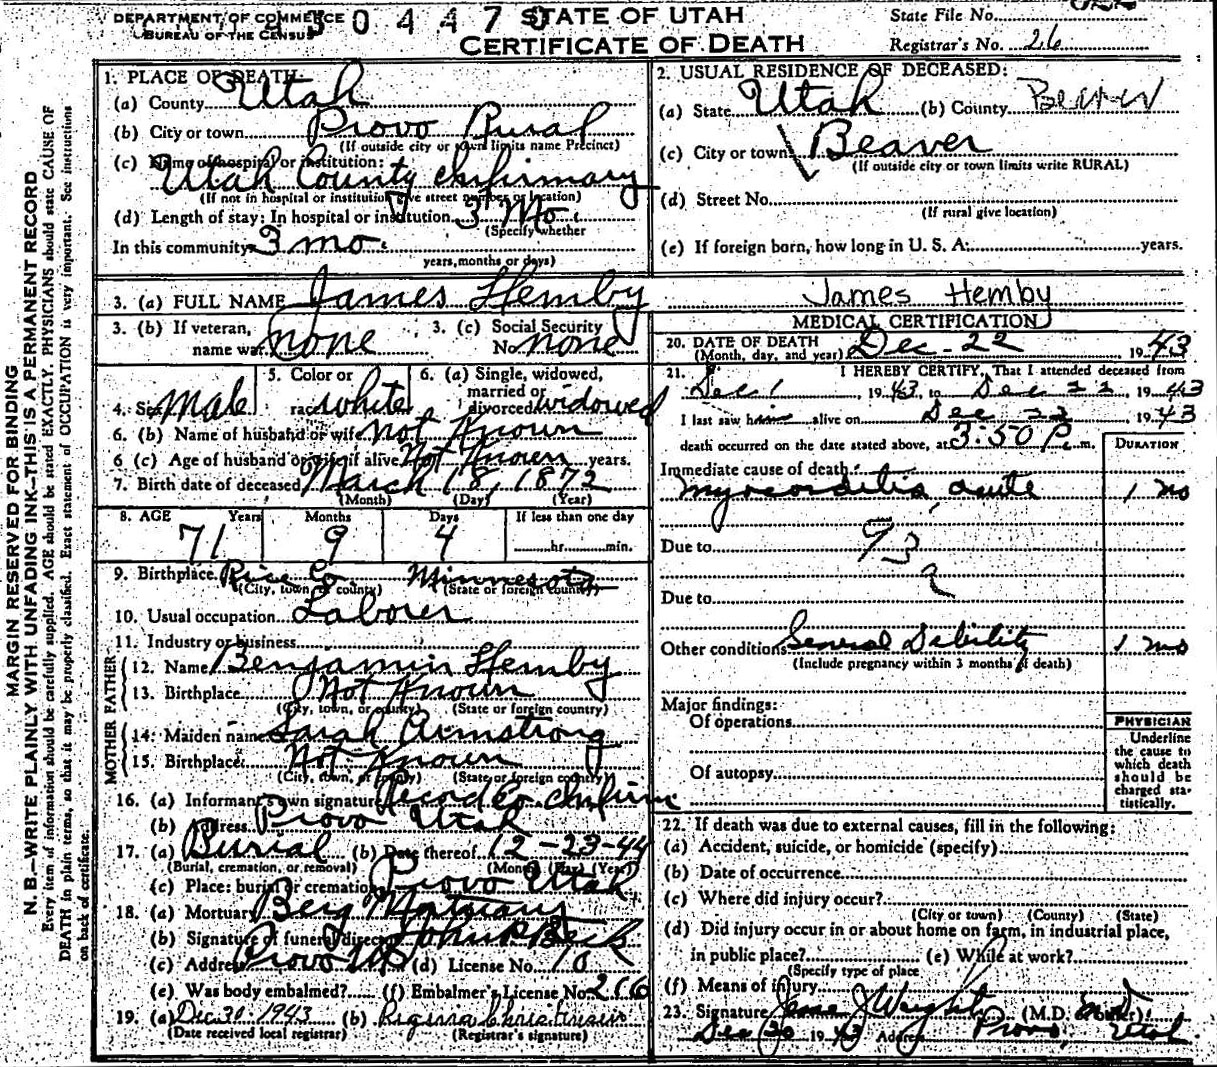 DEPARTMENT OF COMMERCE
BUREAU OF THE CENSUS
30447
STATE OF UTAH
CERTIFICATE OF DEATH
State File No.
Registrar's No. 26
MARGIN RESERVED FOR BINDING
N. B.—WRITE PLAINLY WITH UNFADING INK—THIS IS A PERMANENT RECORD
Every item of information should be carefully supplied. AGE should be stated EXACTLY. PHYSICIANS should state CAUSE OF
DEATH in plain terms, so that it may be properly classified. Exact statement of OCCUPATION is very important. See instructions
on back of certificate.
1. PLACE OF DEATH:
(a) County Utah
(b) City or town Provo Rural
(If outside city or town limits name Precinct)
(c) Name of hospital or institution:
Utah County Infirmary
(If not in hospital or institution give street number or location)
(d) Length of stay: In hospital or institution 3 Mo.
(Specify whether
In this community 3 mo.
years, months or days)
2. USUAL RESIDENCE OF DECEASED:
(a) State Utah (b) County Beaver
(c) City or town Beaver
(If outside city or town limits write RURAL)
(d) Street No.
(If rural give location)
(e) If foreign born, how long in U. S. A: years.
3. (a) FULL NAME James Hemby
James Hemby
3. (b) If veteran, name war none
3. (c) Social Security No. none
4. Sex Male
5. Color or race white
6. (a) Single, widowed, married or divorced widowed
6. (b) Name of husband or wife Not Known
6 (c) Age of husband or wife if alive Not Known years.
7. Birth date of deceased March 18, 1872
(Month) (Day) (Year)
8. AGE Years Months Days If less than one day
71 9 4 hr. min.
9. Birthplace Rice Co. Minnesota
(City, town or county) (State or foreign country)
10. Usual occupation Laborer
11. Industry or business
FATHER
12. Name Benjamin Hemby
13. Birthplace Not Known
(City, town, or county) (State or foreign country)
MOTHER
14. Maiden name Sarah Armstrong
15. Birthplace Not Known
(City, town, or county) (State or foreign country)
16. (a) Informant's own signature Record Co. Infirm
(b) Address Provo Utah
17. (a) Burial (b) Date thereof 12-23-44
(Burial, cremation, or removal) (Month) (Day) (Year)
(c) Place: burial or cremation Provo Utah
18. (a) Mortuary Berg Mortuary
(b) Signature of funeral director
(c) Address Provo (d) License No. 70
(e) Was body embalmed? (f) Embalmer's License No. 266
19. (a) Dec 30, 1943 (b) Regina Christensen
(Date received local registrar) (Registrar's signature)
MEDICAL CERTIFICATION
20. DATE OF DEATH
(Month, day, and year) Dec - 22 1943
21. I HEREBY CERTIFY, That I attended deceased from
Dec 1, 1943, to Dec 22, 1943
I last saw him alive on Dec 22 1943
death occurred on the date stated above, at 3:50 P. m.
DURATION
Immediate cause of death
Myocarditis, acute 1 mo
Due to 93
Due to
Other conditions General Debility 1 mo
(Include pregnancy within 3 months of death)
Major findings:
Of operations
Of autopsy
PHYSICIAN
Underline
the cause to
which death
should be
charged sta-
tistically.
22. If death was due to external causes, fill in the following:
(a) Accident, suicide, or homicide (specify)
(b) Date of occurrence
(c) Where did injury occur?
(City or town) (County) (State)
(d) Did injury occur in or about home on farm, in industrial place,
in public place? (e) While at work?
(Specify type of place
(f) Means of injury
23. Signature (M.D. or other)
Dec 30 1943 Address Provo, Utah